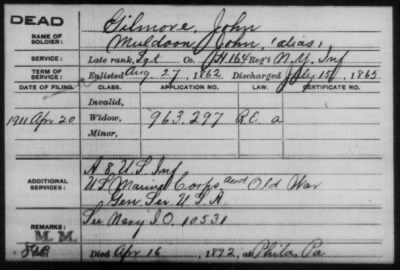 DEAD
NAME OF SOLDIER: Gilmore, John
Muldoon, John, (alias)
SERVICE: Late rank, Sgt Co. H, 164 Reg't N.Y. Inf
TERM OF SERVICE: Enlisted Aug 27, 1862 Discharged July 15, 1865
DATE OF FILING. CLASS. APPLICATION NO. LAW. CERTIFICATE NO.
Invalid,
1911 Apr 20 Widow, 963.297 R.E. a
Minor,
A 8, U.S Inf
ADDITIONAL SERVICES: U.S. Marine Corps. and Old War
Gen Ser U.S.A.
REMARKS: See Navy S.O. 10531
M. M.
Died Apr 16, 1892, at Phila, Pa